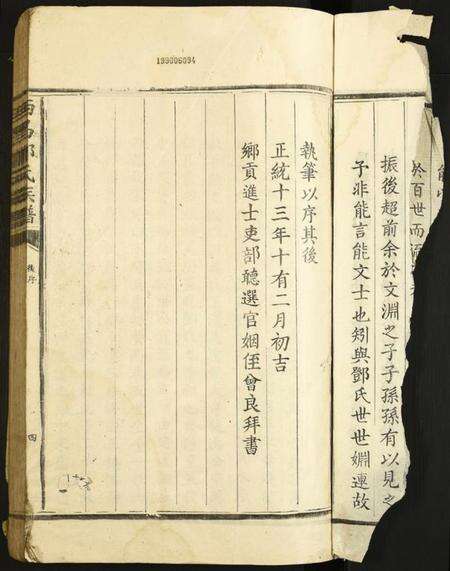 199006094
於百世而
振後超前余於文淵之子子孫孫有以見之
子非能言能文士也矧與鄧氏世世婣連故
執筆以序其後
正統十三年十有二月初吉
鄉貢進士吏部聽選官姻侄曾良拜書
氏族譜
後序
四